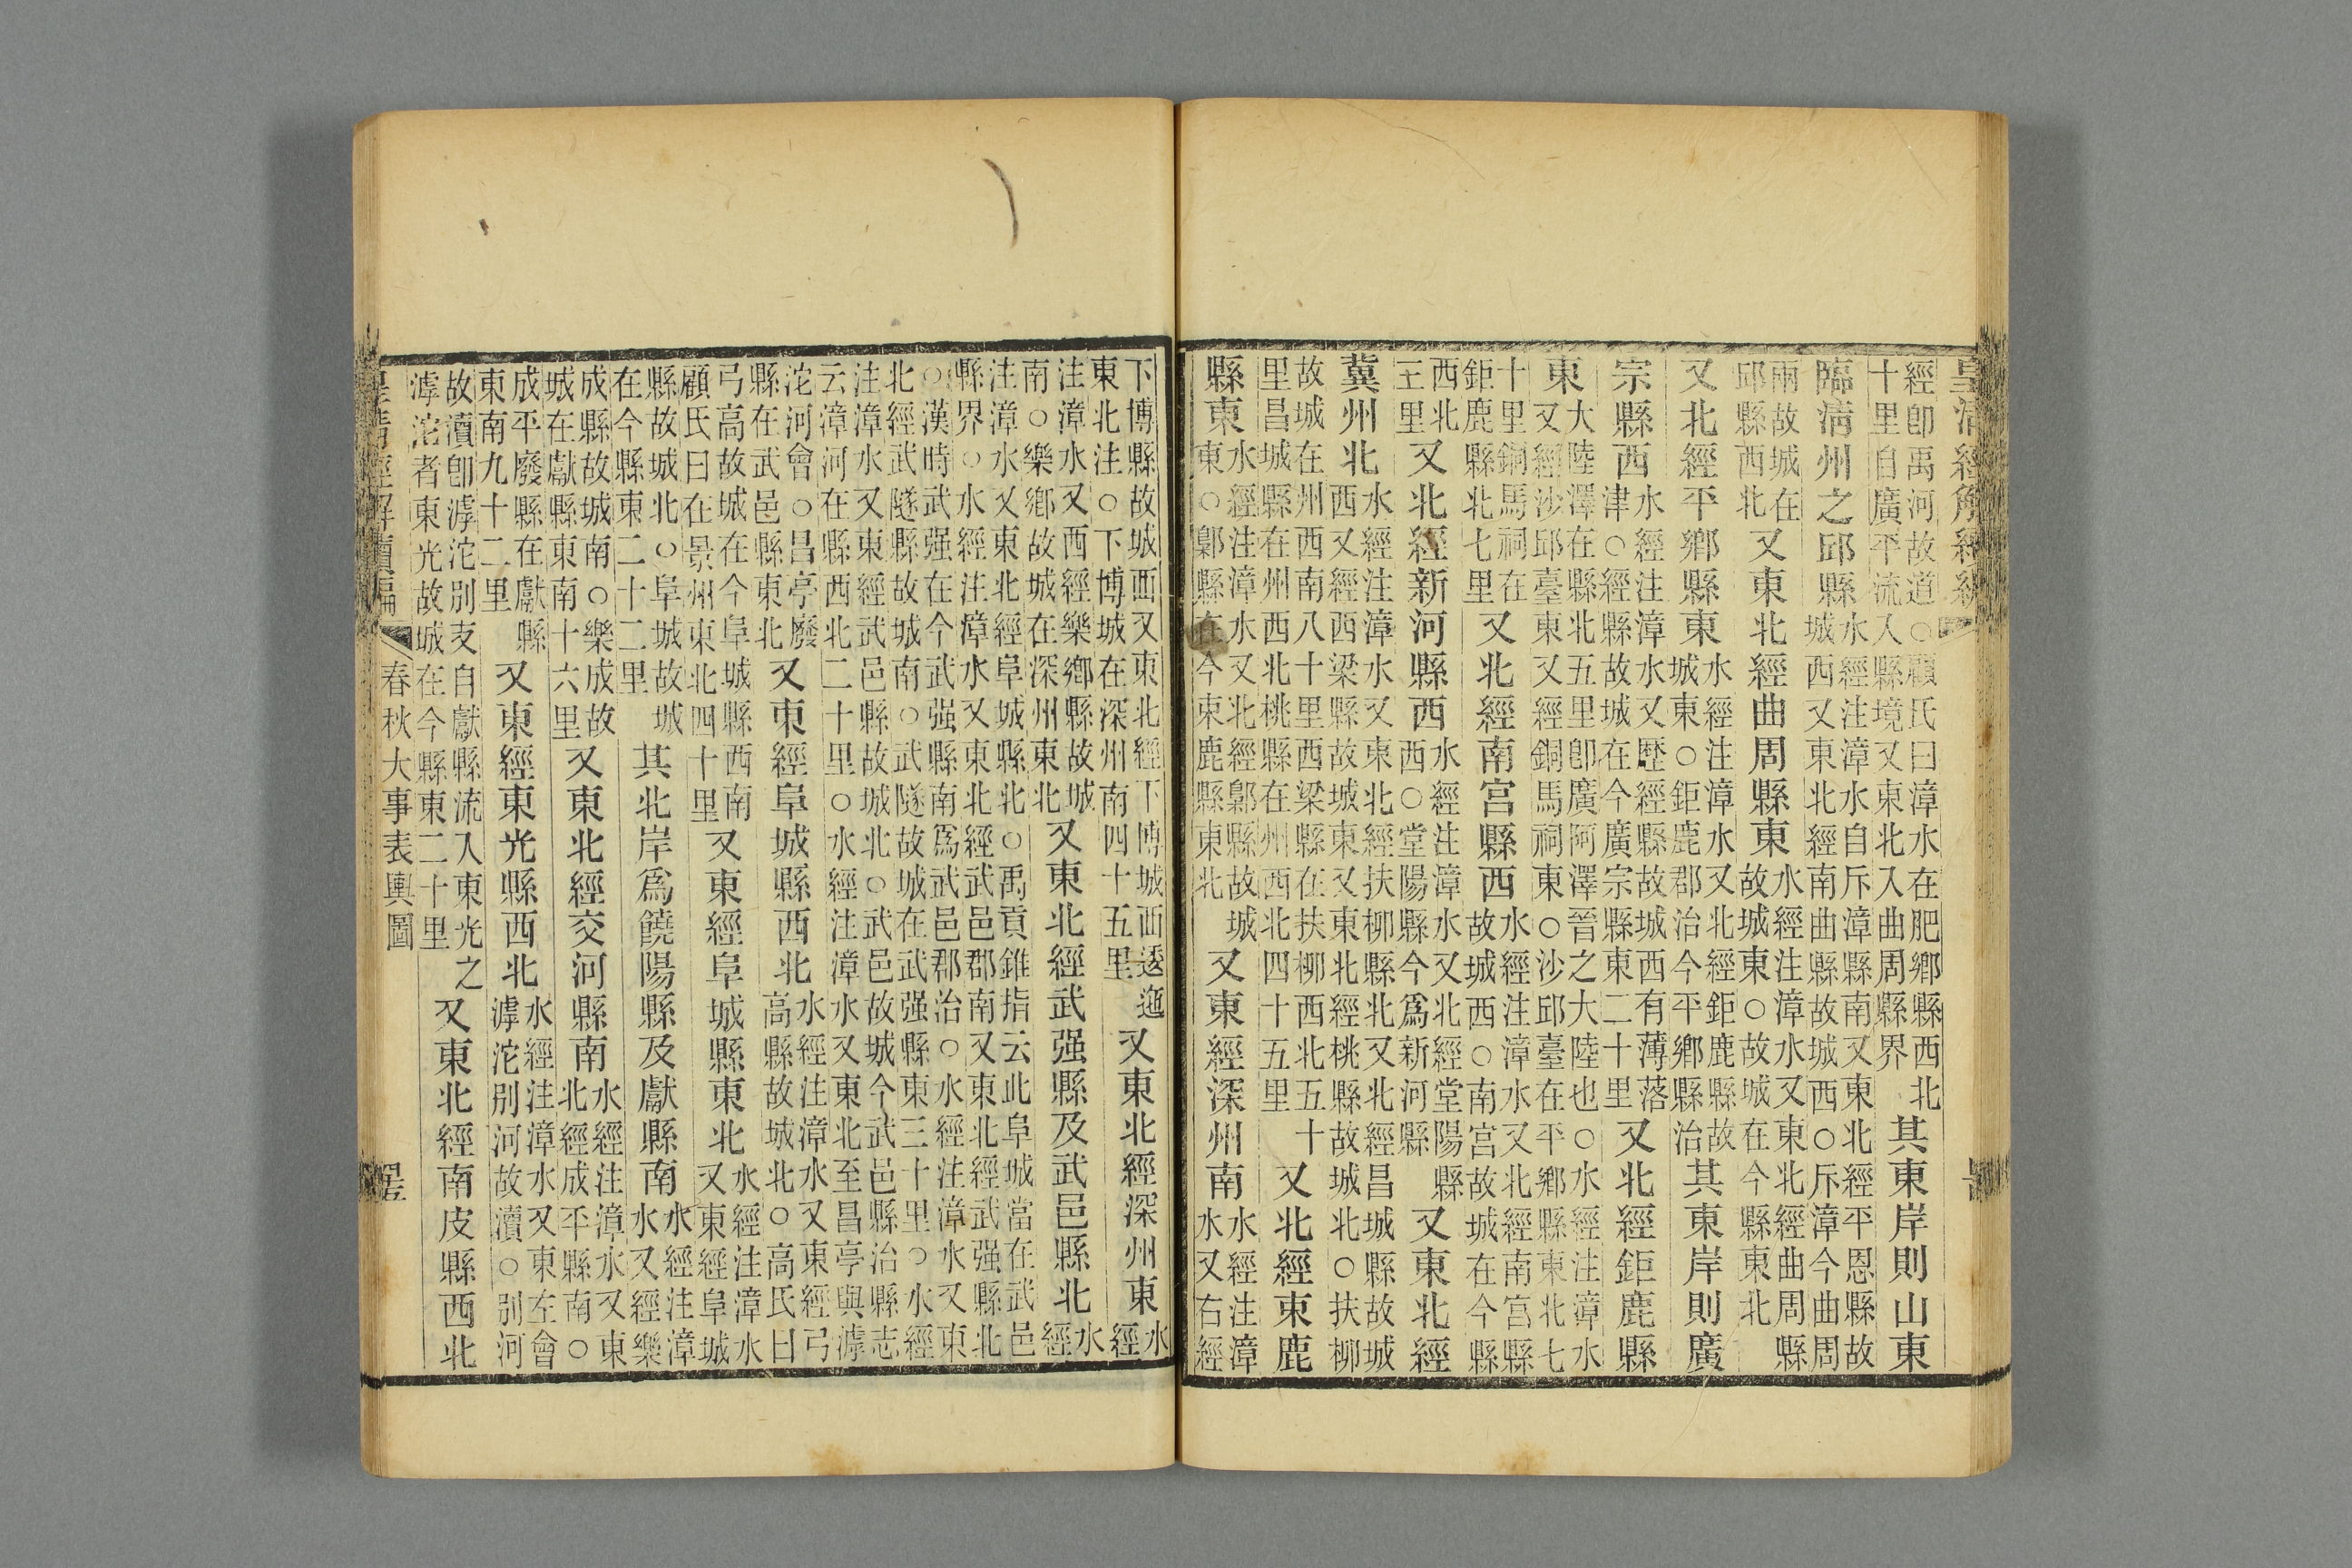 皇清經解續編
經即禹河故道○顧氏曰漳水在肥鄉縣西北
十里自廣平流入縣境又東北入曲周縣界
其東岸則山東
臨淸州之邱縣
水經注漳水自斥漳縣南又東北經平恩縣故
城西又東北經南曲縣故城西○斥漳今曲周
兩故城在
邱縣西北
又東北經曲周縣東
水經注漳水又東北經曲周縣
故城東○故城在今縣東北
又北經平鄉縣東
水經注漳水又北經鉅鹿縣故
城東○鉅鹿郡治今平鄉縣治
其東岸則廣
宗縣西
水經注漳水又歷經縣故城西有薄落
津○經縣故城在今廣宗縣東二十里
又北經鉅鹿縣
東
大陸澤在縣北五里即廣阿澤晉之大陸也○水經注漳水
又經沙邱臺東又經銅馬祠東○沙邱臺在平鄉縣東北七
十里銅馬祠在
鉅鹿縣北七里
又北經南宮縣西
水經注漳水又北經南宮縣
故城西○南宮故城在今縣
西北
三里
又北經新河縣西
水經注漳水又北經堂陽縣
西○堂陽縣今爲新河縣
又東北經
冀州北
水經注漳水又東北經扶柳縣北又北經昌城縣故城
西又經西梁縣故城東又東北經桃縣故城北○扶柳
故城在州西南八十里西梁縣在扶柳西北五十
里昌城縣在州西北桃縣在州西北四十五里
又北經東鹿
縣東
水經注漳水又北經鄡縣故城
東○鄡縣在今東鹿縣東北
又東經深州南
水經注漳
水又右經
下博縣故城西又東北經下博城西逶迤
東北注○下博城在深州南四十五里
又東北經深州東
水
經
注漳水又西經樂鄉縣故城
南○樂鄉故城在深州東北
又東北經武强縣及武邑縣北
水
經
注漳水又東北經阜城縣北○禹貢錐指云此阜城當在武邑
縣界○水經注漳水又東北經武邑郡南又東北經武强縣北
○漢時武强在今武强縣南爲武邑郡治○水經注漳水又東
北經武隧縣故城南○武隧故城在武强縣東三十里○水經
注漳水又東經武邑縣故城北○武邑故城今武邑縣治縣志
云漳河在縣西北二十里○水經注漳水又東北至昌亭與滹
沱河會○昌亭廢
縣在武邑縣東北
又東經阜城縣西北
水經注漳水又東經弓
高縣故城北○高氏曰
弓高故城在今阜城縣西南
顧氏曰在景州東北四十里
又東經阜城縣東北
水經注漳水
又東經阜城
縣故城北○阜城故城
在今縣東二十二里
其北岸爲饒陽縣及獻縣南
水經注漳
水又經樂
成縣故城南○樂成故
城在獻縣東南十六里
又東北經交河縣南
水經注漳水又東
北經成平縣南○
成平廢縣在獻縣
東南九十二里
又東經東光縣西北
水經注漳水又東左會
滹沱別河故瀆○別河
故瀆卽滹沱別支自獻縣流入東光之
滹沱者東光故城在今縣東二十里
又東北經南皮縣西北
皇清經解續編
春秋大事表輿圖